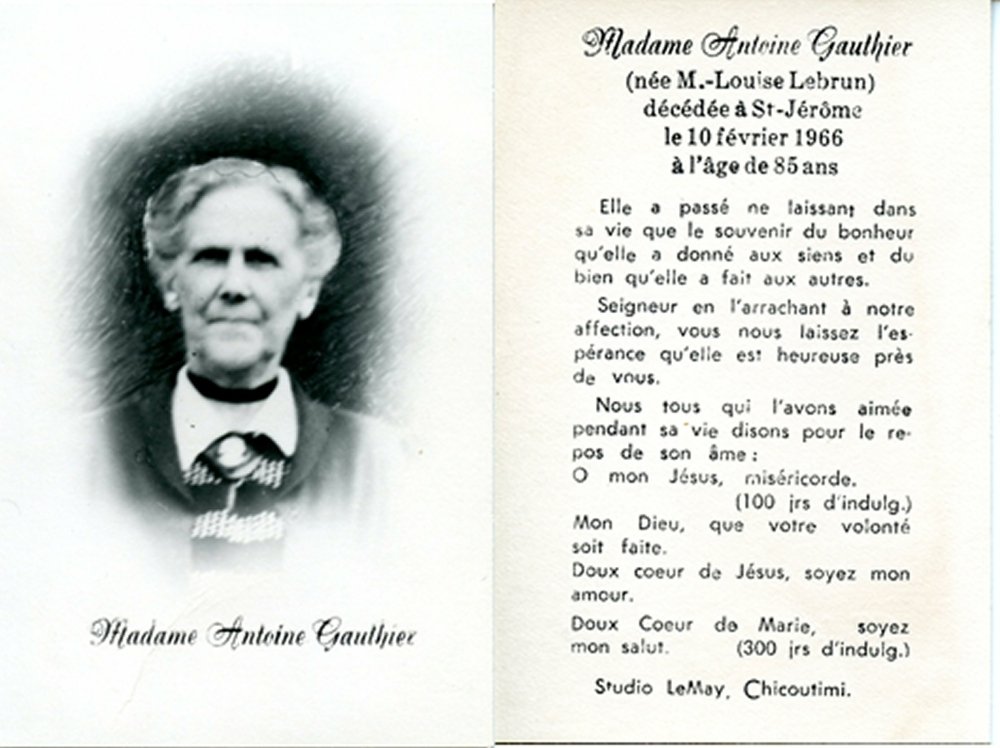 Madame Antoine Gauthier
Madame Antoine Gauthier
(née M.-Louise Lebrun)
décédée à St-Jérôme
le 10 février 1966
à l'âge de 85 ans
Elle a passé ne laissant dans
sa vie que le souvenir du bonheur
qu'elle a donné aux siens et du
bien qu'elle a fait aux autres.
Seigneur en l'arrachant à notre
affection, vous nous laissez l'es-
pérance qu'elle est heureuse près
de vous.
Nous tous qui l'avons aimée
pendant sa vie disons pour le re-
pos de son âme :
O mon Jésus, miséricorde.
(100 jrs d'indulg.)
Mon Dieu, que votre volonté
soit faite.
Doux coeur de Jésus, soyez mon
amour.
Doux Coeur de Marie, soyez
mon salut. (300 jrs d'indulg.)
Studio LeMay, Chicoutimi.